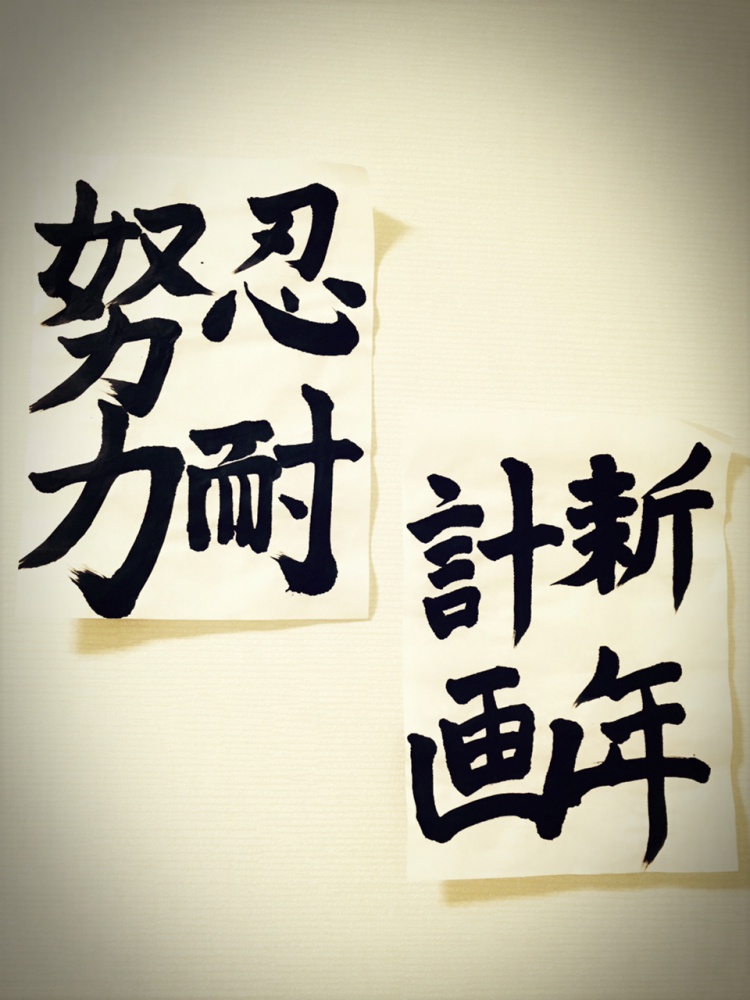 忍耐
努力
新年
計画